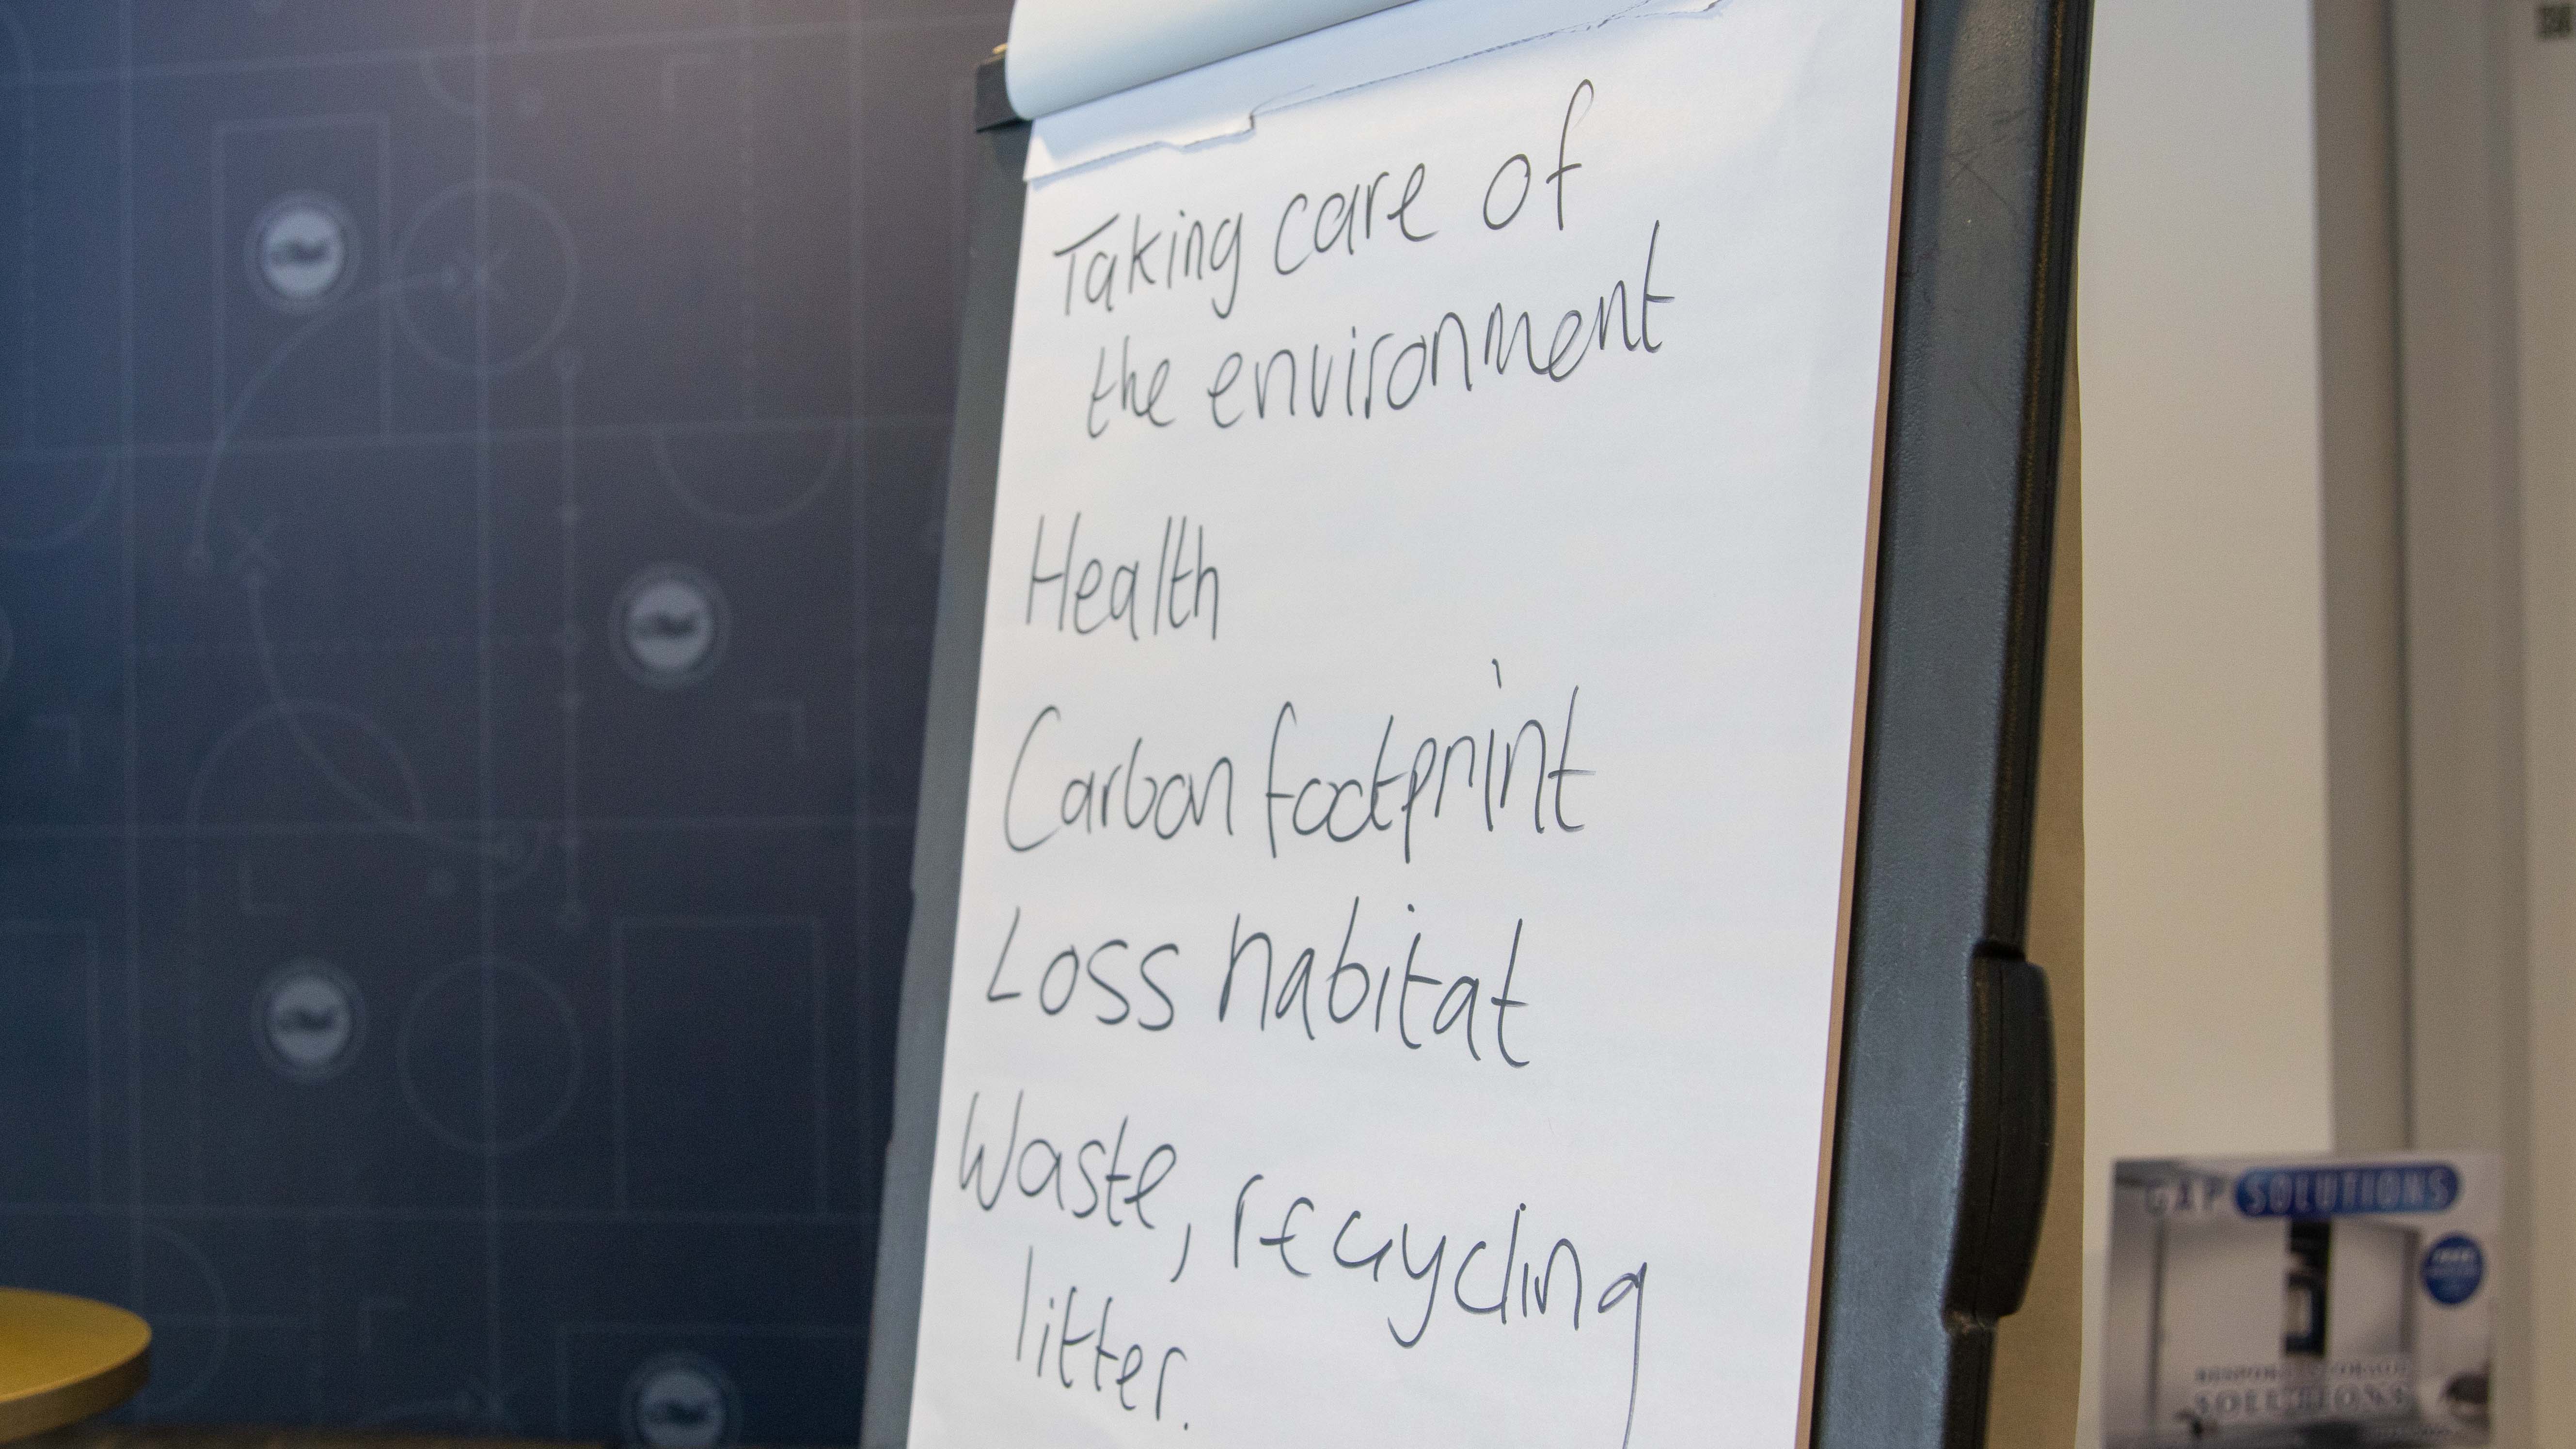 Taking care of
the environment
Health
Carbon footprint
Loss habitat
Waste, recycling
litter.
GAP SOLUTIONS
SOLUTIONS